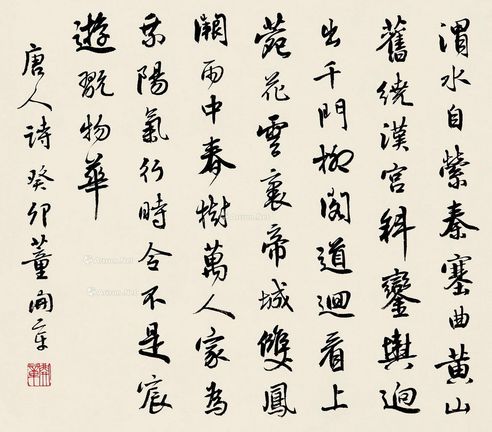 渭水自縈秦塞曲黃山
舊繞漢宮斜鑾輿迥
出千門柳閣道迴看上
苑花雲裏帝城雙鳳
闕雨中春樹萬人家為
乘陽氣行時令不是宸
遊翫物華
唐人詩癸卯董開章